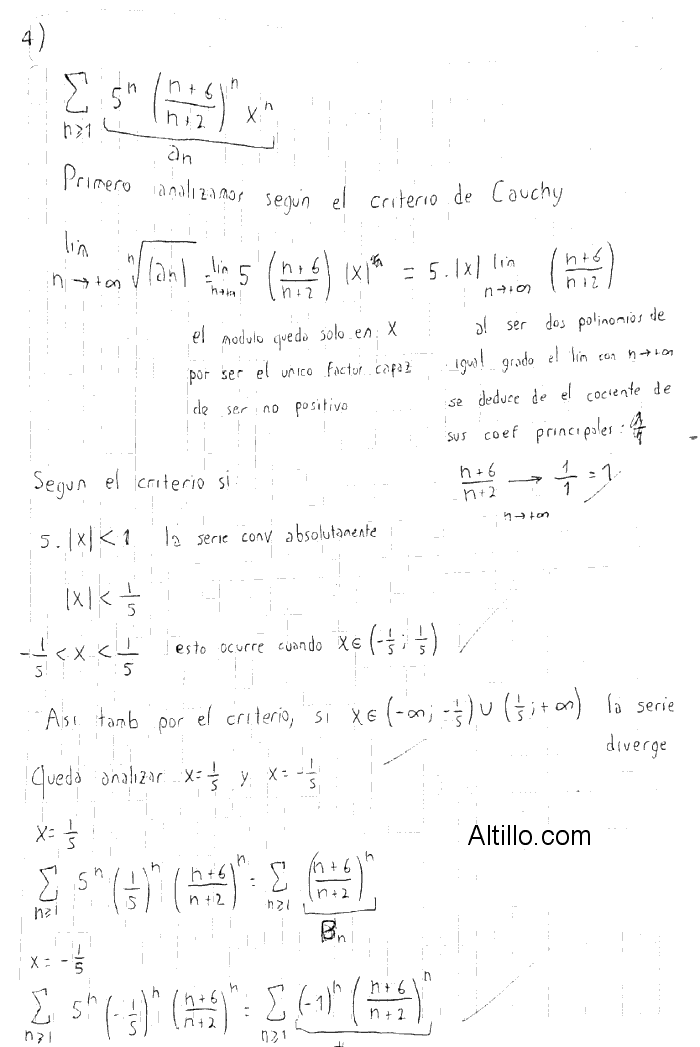 4)
∑ n≥1 5^n ((n+6)/(n+2))^n x^n
an
Primero analizamos según el criterio de Cauchy
lim n→+∞ ⁿ√|an| = lim n→+∞ 5 ((n+6)/(n+2)) |x| = 5.|x| lim n→+∞ ((n+6)/(n+2))
el modulo queda solo en x
por ser el unico factor capaz
de ser no positivo
al ser dos polinomios de
igual grado el lim con n→+∞
se deduce de el cociente de
sus coef principales:
(n+6)/(n+2) → 1/1 = 1
n→+∞
Segun el criterio si
5.|x| < 1 la serie conv absolutamente
|x| < 1/5
-1/5 < x < 1/5 esto ocurre cuando x∈(-1/5; 1/5)
Asi tamb por el criterio, si x∈(-∞; -1/5) ∪ (1/5; +∞) la serie
diverge
Queda analizar x=1/5 y x=-1/5
x=1/5
Altillo.com
∑ n≥1 5^n (1/5)^n ((n+6)/(n+2))^n = ∑ n≥1 ((n+6)/(n+2))^n
Bn
x=-1/5
∑ n≥1 5^n (-1/5)^n ((n+6)/(n+2))^n = ∑ n≥1 (-1)^n ((n+6)/(n+2))^n